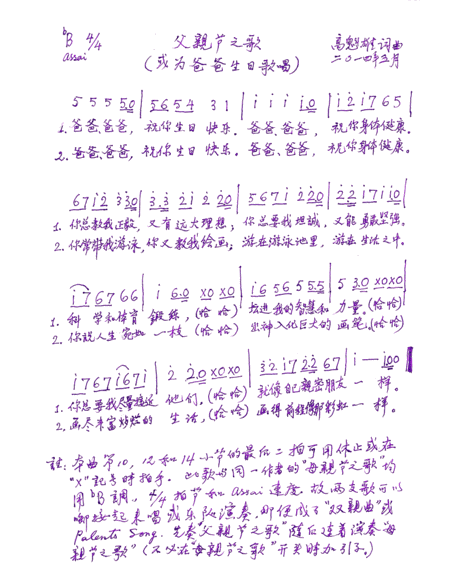 ᵇB 4/4 父親节之歌 高魁雄词曲
assai (或为爸爸生日歌唱) 二〇一四年五月
5 5 5 5 0 | 5 6 5 4 3 1 | i i i i 0 | i 2 i 7 6 5 |
1. 爸爸、爸爸, 祝你生日 快乐. 爸爸、爸爸, 祝你身体健康.
2. 爸爸、爸爸, 祝你生日 快乐. 爸爸、爸爸, 祝你身体健康.
6 7 i 2 3 3 0 | 3 3 2 i 2 2 0 | 5 6 7 i 2 2 0 | 2 2 i 7 i i 0 |
1. 你总教我正数, 又有远大理想; 你总要我坦诚, 又能勇敢坚强.
2. 你常带我游泳, 你又教我绘画; 游在游泳池里, 游在生活之中.
i 7 6 7 6 6 | i 6 0 x0 x0 | i 6 5 6 5 5 5 | 5 3 0 x0 x0 |
1. 科 学和体育 鍛鍊, (恰恰) 促进我的智慧和 力量. (恰恰)
2. 你说人生宛如 一枝 (恰恰) 出神入化巨大的 画笔. (恰恰)
i 7 6 7 i 6 7 i | 2 2 0 x0 x0 | 3 2 i 7 2 2 6 7 | i — i 0 0 |
1. 你总要我尽量接近 他们, (恰恰) 就像自己親密朋友 一 样.
2. 画尽丰富灿烂的 生活, (恰恰) 画得前程像那彩虹 一 样.
註: 本曲第10, 12和14小节的最后二拍可用休止或在
"X"記号时拍手. 此歌与同一作者的"母親节之歌"均
用 ᵇB 調, 4/4 拍节和 Assai 速度. 故两支歌可以
啣接起来唱或乐队演奏, 即便成了"双親曲"或
Palents Song. 先奏"父親节之歌"随后连着演奏"母
親节之歌" (不必在"母親节之歌"开头时加引子.)